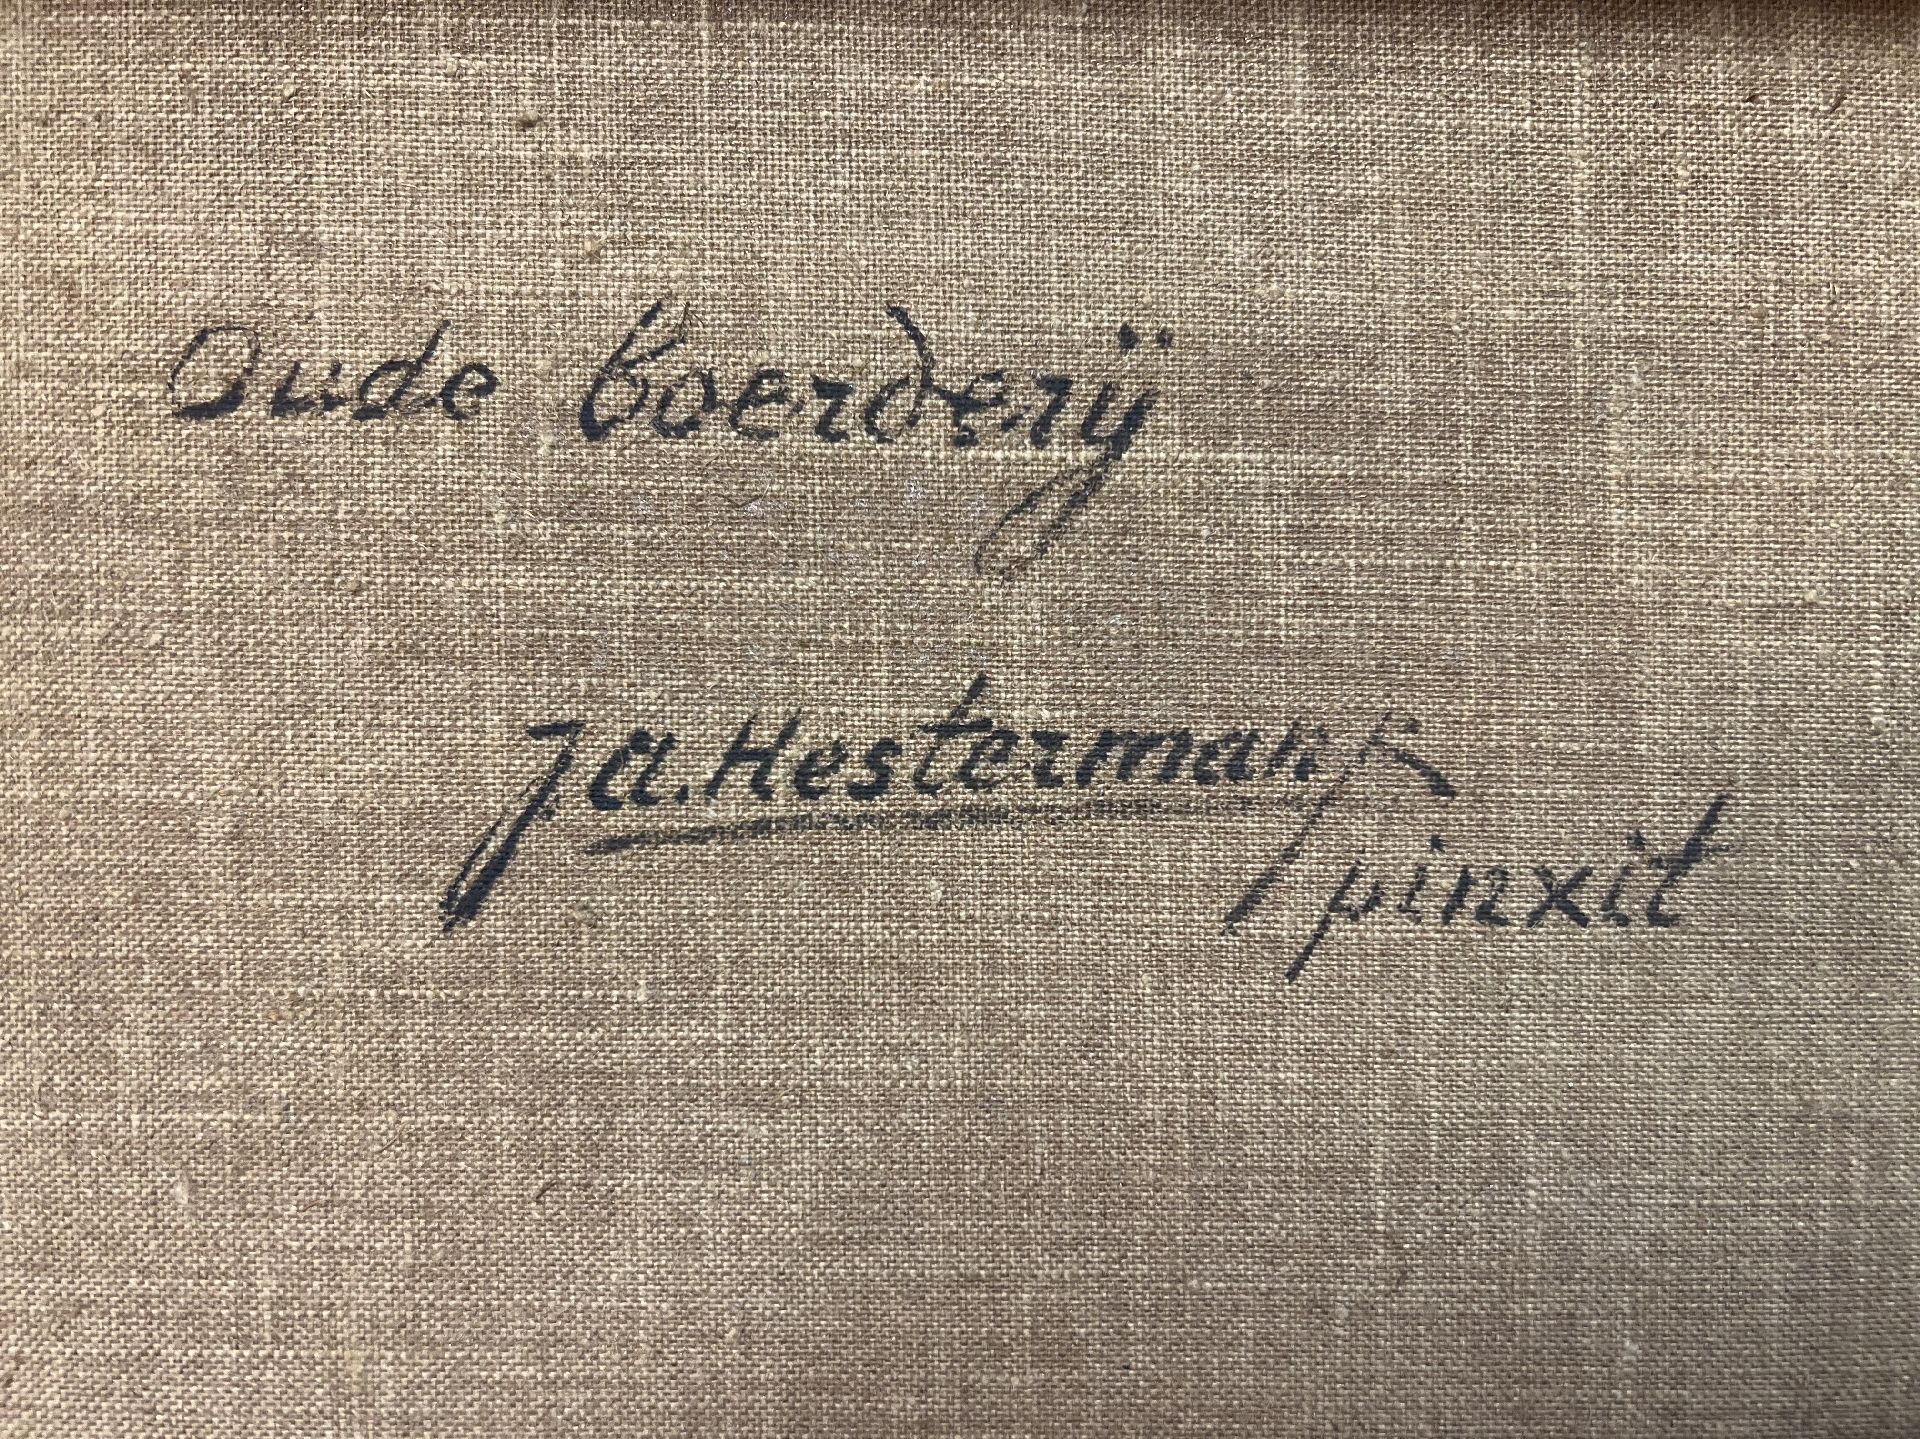 Oude boerderij
Ja. Hestermann
pinxit